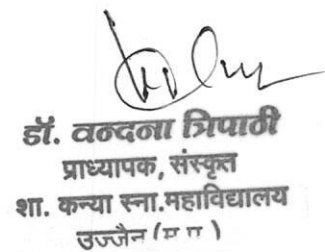 डॉ. वन्दना त्रिपाठी
प्राध्यापक, संस्कृत
शा. कन्या स्ना.महाविद्यालय
उज्जैन (म प्र )